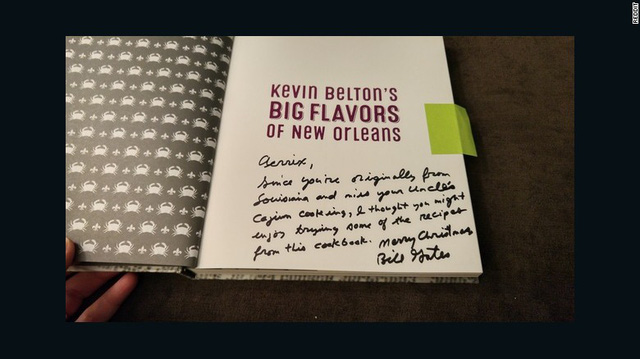 Kevin Belton's
BIG FLAVORS
OF New Orleans
Aerrix,
Since you're originally from
Louisiana and miss your Uncle's
Cajun cooking, I thought you might
enjoy trying some of the recipes
from this cookbook. Merry Christmas
Bill Gates
REDDIT